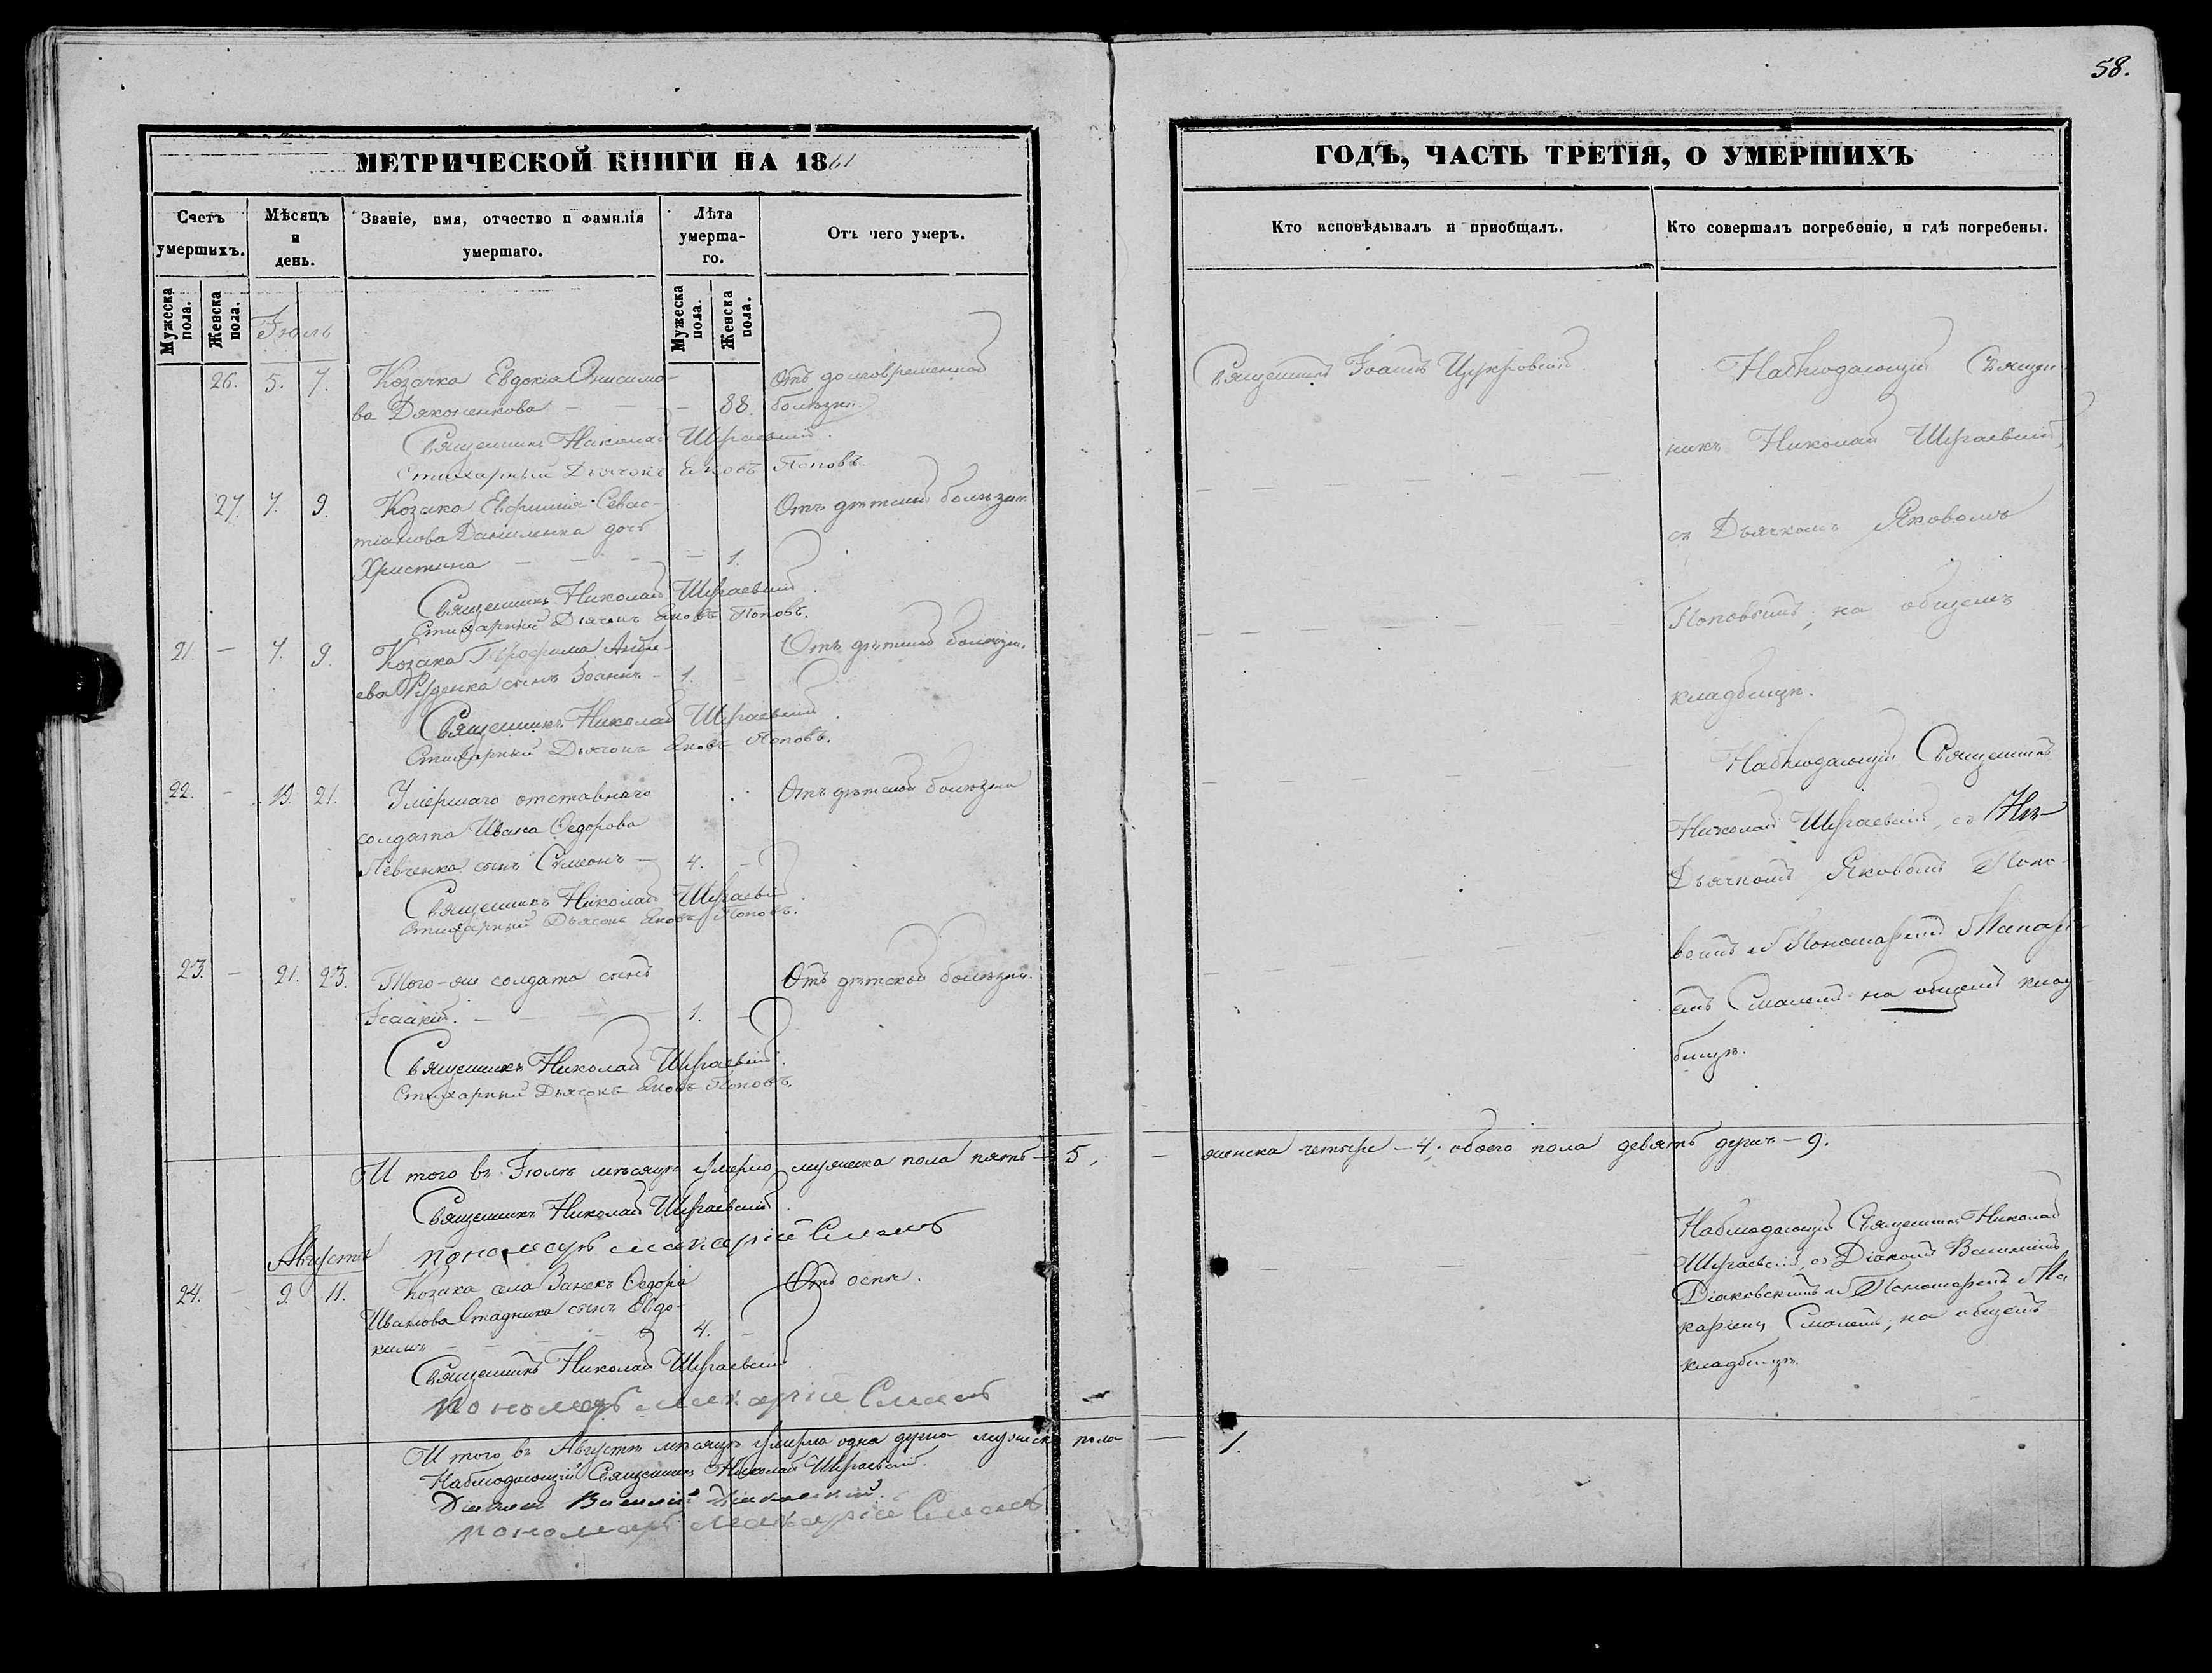 58.
МЕТРИЧЕСКОЙ КНИГИ НА 1861
ГОДЪ, ЧАСТЬ ТРЕТІЯ, О УМЕРШИХЪ
Счетъ умершихъ.
Мѣсяцъ и день.
Званіе, имя, отчество и фамилія умершаго.
Лѣта умерша-го.
Отъ чего умеръ.
Кто исповѣдывалъ и пріобщалъ.
Кто совершалъ погребеніе, и гдѣ погребены.
Мужеска пола.
Женска пола.
Мужеска пола.
Женска пола.
Іюль
26. 5. 7. Козачка Евдокія Онисимо-
ва Дяконенкова — — — 88.
Отъ долговременной
болѣзни
Священникъ Николай
Стихарный Дьячокъ Яковъ Поповъ.
27. 7. 9. Козака Севас-
тіанова Даниленка дочь
Христина — — — — 1.
Отъ дѣтской болѣзни
Священникъ Николай
Стихарный Дьячокъ Яковъ Поповъ.
21. — 7. 9. Козака Трофима Андре-
ева сынъ Іоаннъ — 1. —
Отъ дѣтской болѣзни.
Священникъ Николай
Стихарный Дьячокъ Яковъ Поповъ.
22. — 19. 21. Умершаго отставнаго
солдата Ивана Федорова
Левченка сынъ Симеонъ — 4. —
Отъ дѣтской болѣзни
Священникъ Николай
Стихарный Дьячокъ Яковъ Поповъ.
23. — 21. 23. Того-же солдата сынъ
Ісаакій. — — — — 1. —
Отъ дѣтской болѣзни.
Священникъ Николай
Стихарный Дьячокъ Яковъ Поповъ.
Священникъ Іоаннъ
Наблюдающій Священ-
никъ Николай
съ Дьячкомъ Яковомъ
Поповымъ, на общемъ
кладбищѣ.
Наблюдающій Священникъ
Николай съ
Дьячкомъ Яковомъ Попо-
вымъ и Пономаремъ Макарі-
емъ на общемъ клад-
бищѣ.
И того въ Іюлѣ мѣсяцѣ умерло мужеска пола пять — 5, — женска четыре — 4; обоего пола девять душъ — 9.
Священникъ Николай
пономарь Макарій
Августъ
24. — 9. 11. Козака села Занекъ Федора
Иванова Стадника сынъ Евдо-
кимъ — — 4. —
Отъ оспы.
Священникъ Николай
пономарь Макарій
Наблюдающій Священникъ Николай
съ Діакономъ Василіемъ
Діаковскимъ и Пономаремъ Ма-
каріемъ на общемъ
кладбищѣ.
И того въ Августѣ мѣсяцѣ умерла одна душа мужеска пола — 1.
Наблюдающій Священникъ Николай
Діаконъ Василій Діаковскій.
пономарь Макарій